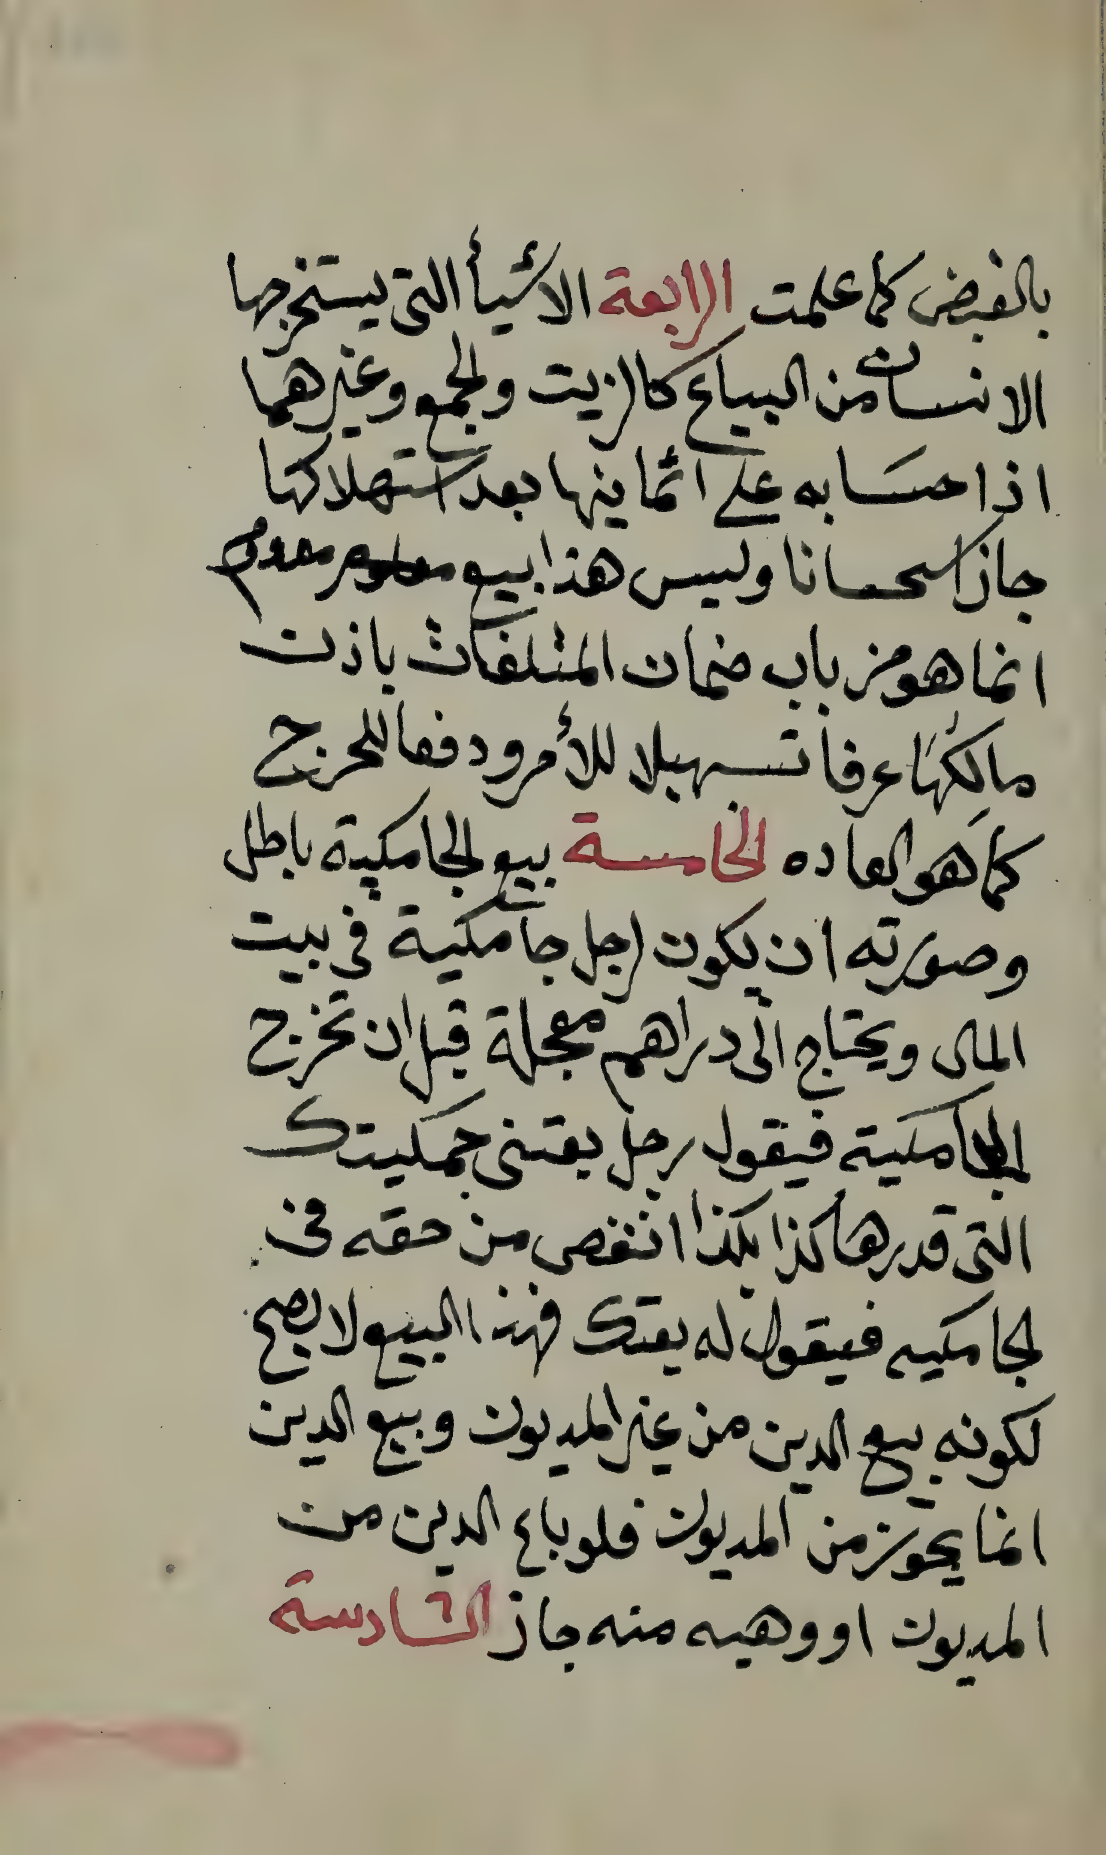 بالقبض كما علمت الرابعة الاشيأ التي يستخرجها
الانسان من البياع كالزيت والجمع وغيرهما
اذا حسابه على اثماينها بعد استهلاكها
جاز استحسانا وليس هذا بيع معدوم
انما هو من باب ضمان المتلفات باذن
مالكها عرفا تسهيلا للأمر ودفعا للحرج
كما هو العاده الخامسة بيع الجامكية باطل
وصورته ان يكون لرجل جامكية في بيت
المال ويحتاج الى دراهم معجلة قبل ان تخرج
الجامكية فيقول رجل بعتنى جمكيتك
التى قدرها كذا بكذا انقص من حقه فى
الجامكيه فيقول له بعتك فهذا البيع لا يصح
لكونه بيع الدين من غير المديون وبيع الدين
انما يجوز من المديون فلو باع الدين من
المديون او وهبه منه جاز السادسة